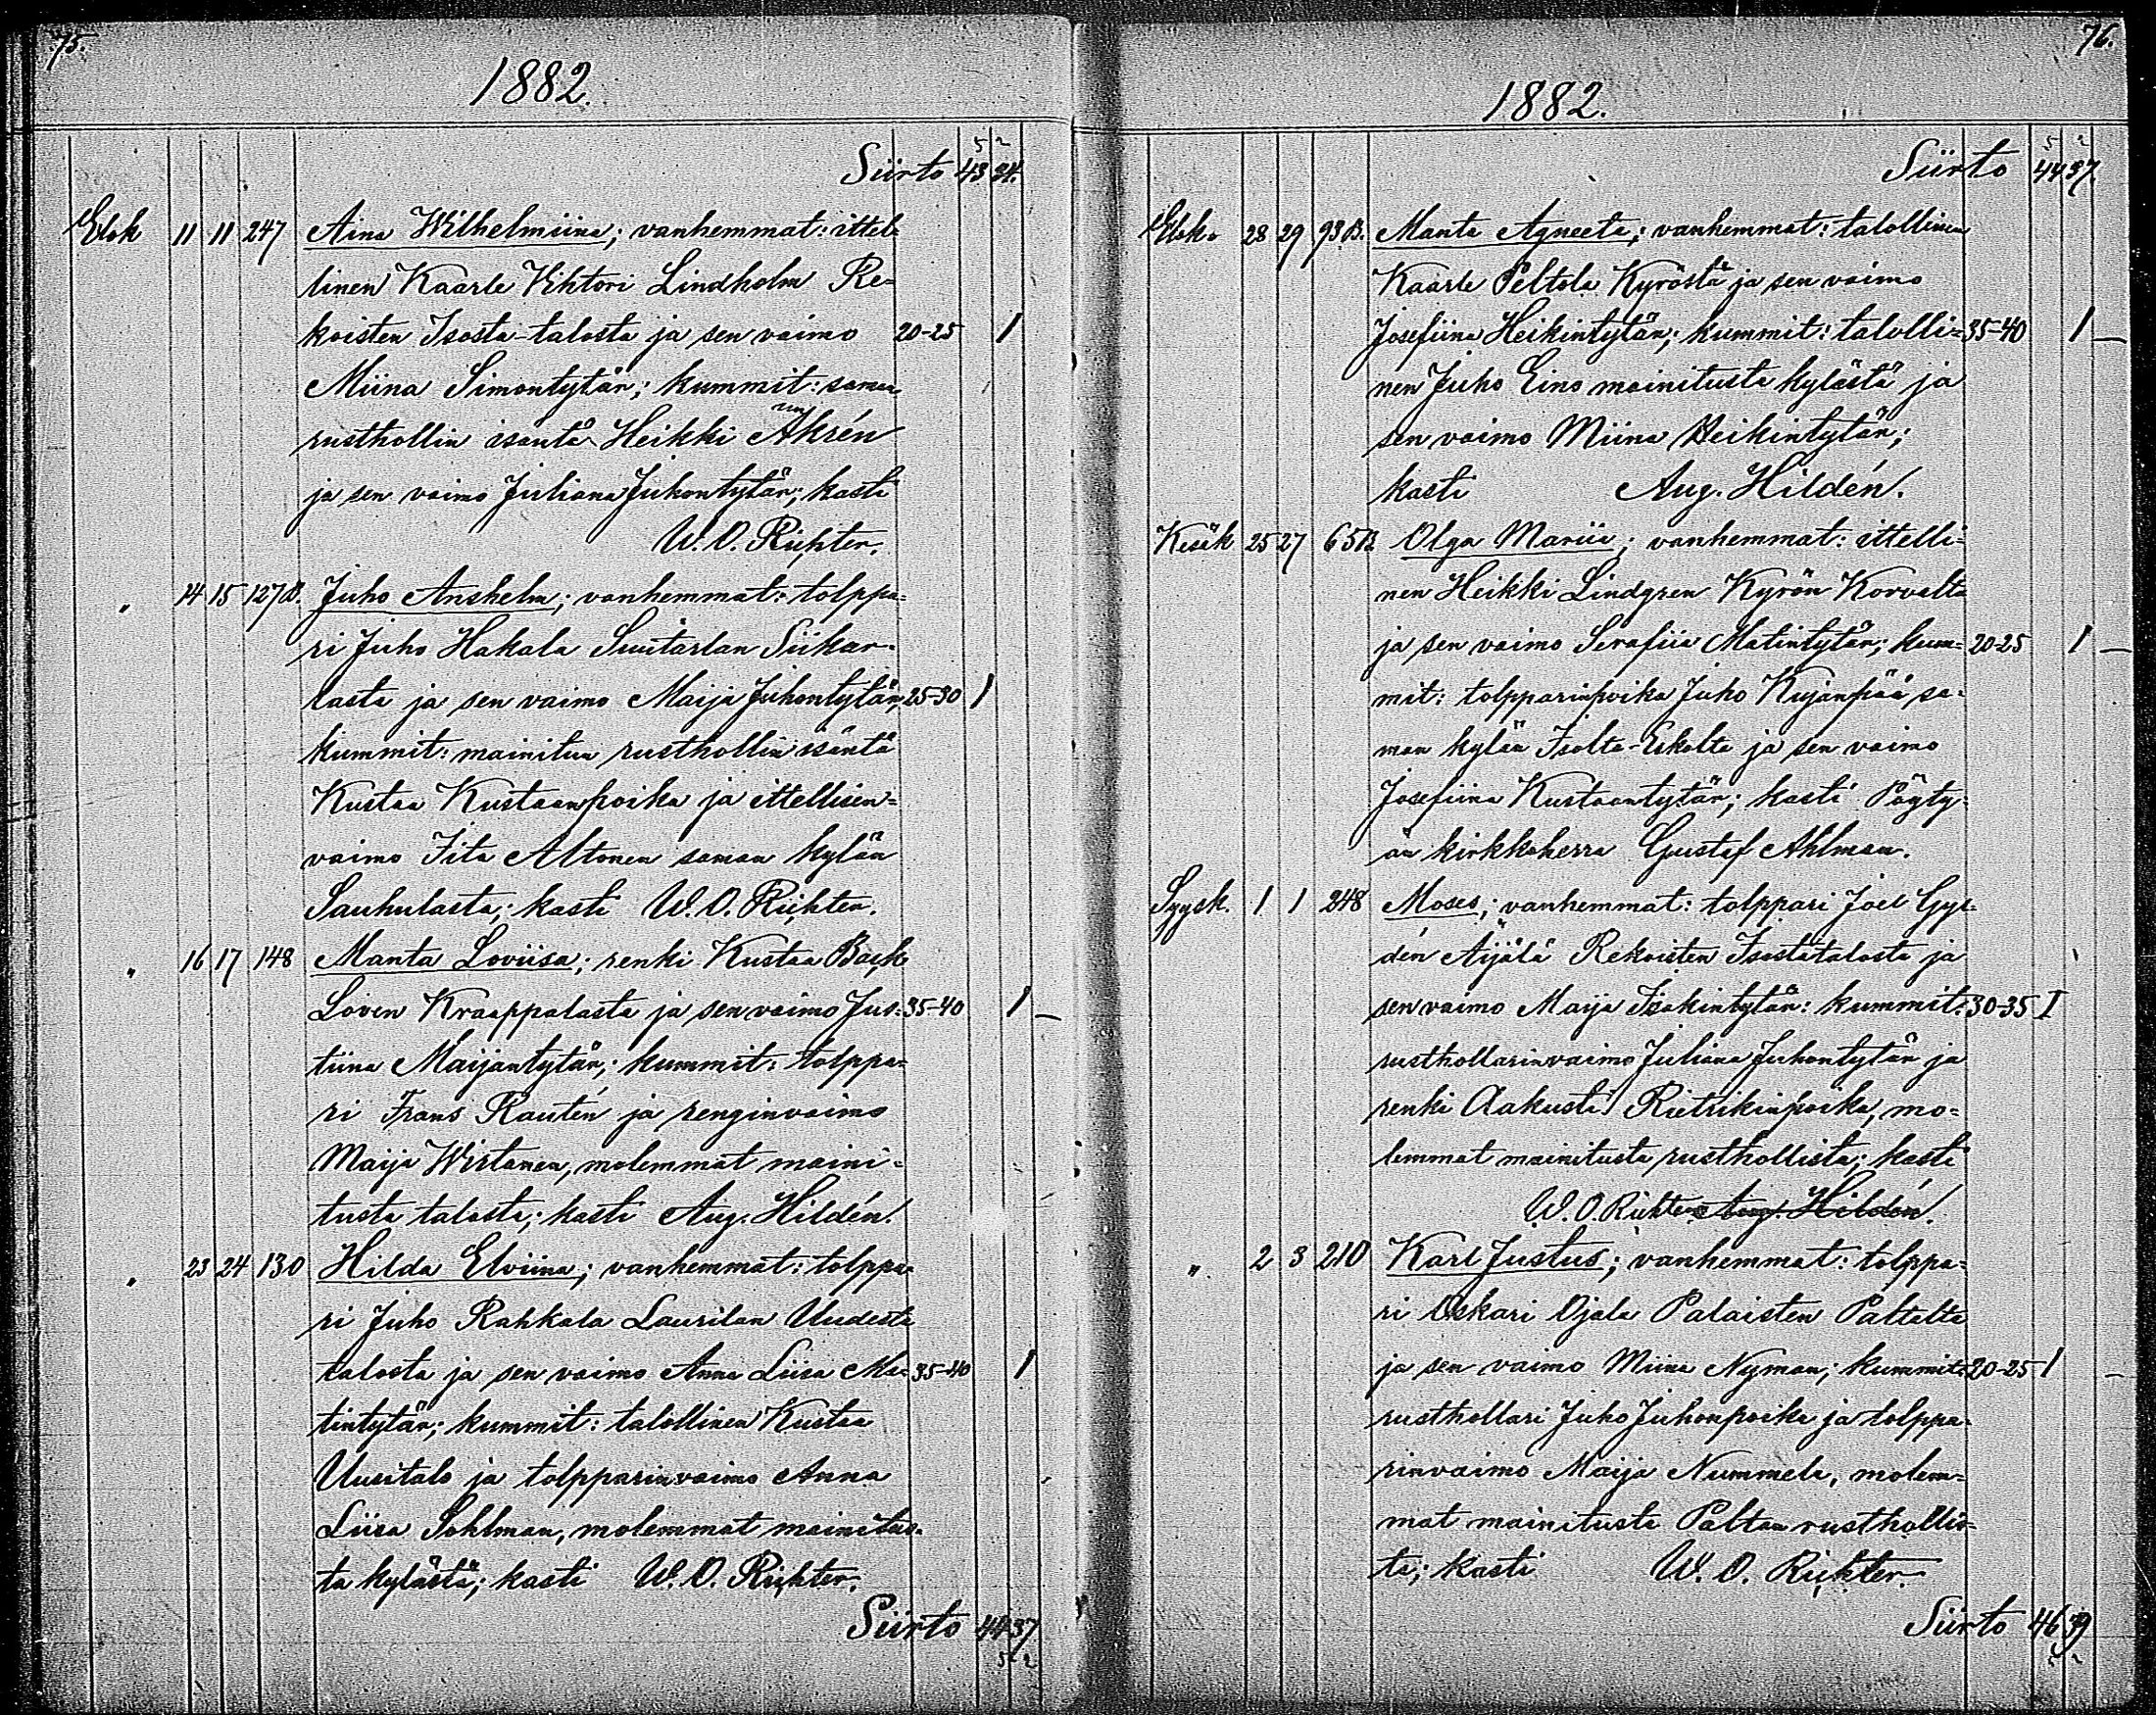 75.
1882.
Siirto 43 34.
5 2
Elok 11 11 247 Aina Wilhelmiina; vanhemmat: ittel=
linen Kaarle Vihtori Lindholm Re=
koisten Isosta-talosta ja sen vaimo 20-25 1
Miina Simontytär; kummit: saman
rusthollin isäntä Heikki Åkrén
ja sen vaimo Juliana Juhontytär; kasti
W. O. Richter.
" 14 15 127 B. Juho Anshelm; vanhemmat: tolppa=
ri Juho Hakala Suutarlan Siikar=
lasta ja sen vaimo Maija Juhontytär; 25-30 1
kummit: mainitun rusthollin isäntä
Kustaa Kustaanpoika ja ittellisen=
vaimo Iita Altonen saman kylän
Sauhulasta; kasti W. O. Richter.
" 16 17 148 Manta Loviisa; renki Kustaa Back
Loven Kraappalasta ja sen vaimo Jus= 35-40 1
tiina Maijantytär; kummit: tolppa=
ri Frans Rautén ja renginvaimo
Maija Wirtanen, molemmat maini=
tusta talosta; kasti Aug. Hildén.
" 23 24 130 Hilda Elviina; vanhemmat: tolppa=
ri Juho Rahkala Laurilan Uudesta
talosta ja sen vaimo Anna Liisa Ma= 35-40 1
tintytär; kummit: talollinen Kustaa
Uusitalo ja tolpparinvaimo Anna
Liisa Sohlman, molemmat mainitus=
ta kylästä; kasti W. O. Richter.
Siirto 44 37
5 2
76.
1882.
Siirto 44 37
5 2
Elok. 28 29 93 B. Manta Agneeta; vanhemmat: talollinen
Kaarle Peltola Kyröstä ja sen vaimo
Josefiina Heikintytär; kummit: talolli= 35-40 1
nen Juho Eino mainitusta kylästä ja
sen vaimo Miina Heikintytär;
kasti Aug. Hildén.
Kesäk 25 27 65 B Olga Mariia; vanhemmat: ittelli=
nen Heikki Lindgren Kyrön Korvalta
ja sen vaimo Serafiia Matintytär; kum= 20-25 1
mit: tolpparinpoika Juho Kujanpää sa=
man kylän Isolta-Eskolta ja sen vaimo
Josefiina Kustaantytär; kasti Pöyty=
än kirkkoherra Gustaf Ahlman.
Syysk. 1 1 248 Moses; vanhemmat: tolppari Joel Gyl=
dén Äijälä Rekoisten Isostatalosta ja
sen vaimo Maija Isakintytär: kummit: 30-35 1
rusthollarinvaimo Juliana Juhontytär ja
renki Aakusti Rietrikinpoika, mo=
lemmat mainitusta rusthollista; kasti
W. O. Richter. Aug. Hildén.
" 2 3 210 Karl Justus; vanhemmat: tolppa=
ri Oskari Ojala Palaisten Paltalta
ja sen vaimo Miina Nyman; kummit: 20-25 1
rusthollari Juho Juhonpoika ja tolppa=
rinvaimo Maija Nummela, molem=
mat mainitusta Paltan rusthollis=
ta; kasti W. O. Richter.
Siirto 46 39
5 2